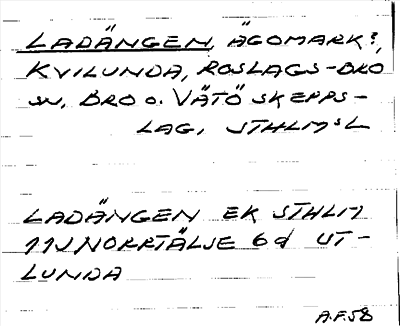 LADÄNGEN, ÄGOMARK?,
KVILUNDA, ROSLAGS-BRO
SN, BRO O. VÄTÖ SKEPPS-
LAG, STHLMS L
LADÄNGEN EK STHLM
11J NORRTÄLJE 6d UT-
LUNDA
A.F.58